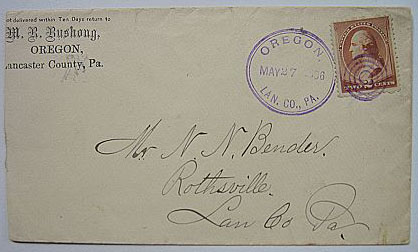 not delivered within Ten Days return to
M. R. Bushong,
OREGON,
Lancaster County, Pa.
OREGON
MAY 27
LAN. CO., PA.
Mr N. N. Bender.
Rothsville.
Lan Co Pa.